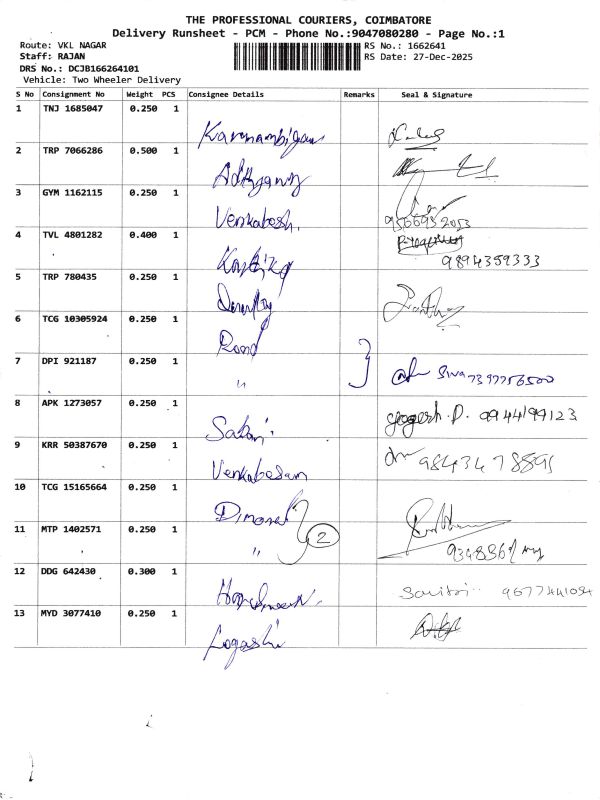 THE PROFESSIONAL COURIERS, COIMBATORE
Delivery Runsheet - PCM - Phone No.:9047080280 - Page No.:1
Route: VKL NAGAR RS No.: 1662641
Staff: RAJAN RS Date: 27-Dec-2025
DRS No.: DCJB166264101
Vehicle: Two Wheeler Delivery
S No Consignment No Weight PCS Consignee Details Remarks Seal & Signature
1 TNJ 1685047 0.250 1
2 TRP 7066286 0.500 1
3 GYM 1162115 0.250 1
Venkatesh. 9566952053
4 TVL 4801282 0.400 1
9894359333
5 TRP 780435 0.250 1
6 TCG 10305924 0.250 1
7 DPI 921187 0.250 1
" Siva 7397756500
8 APK 1273057 0.250 1
yogesh.D. 9944199123
9 KRR 50387670 0.250 1
Venkatesan
10 TCG 15165664 0.250 1
11 MTP 1402571 0.250 1
" 2
12 DDG 642430 0.300 1
9677441054
13 MYD 3077410 0.250 1